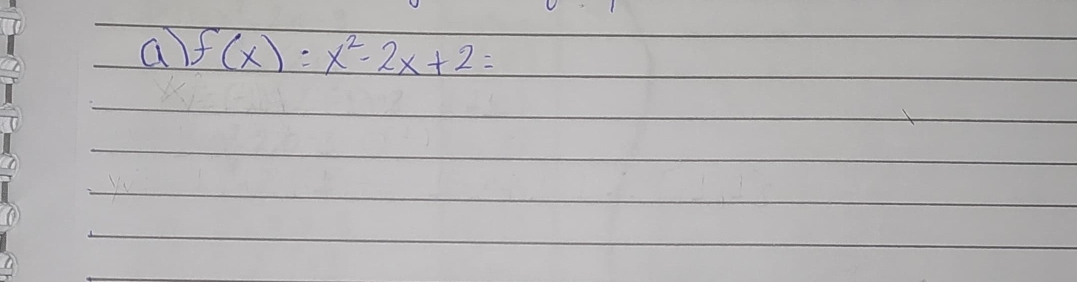 a) f(x) = x² - 2x + 2 =